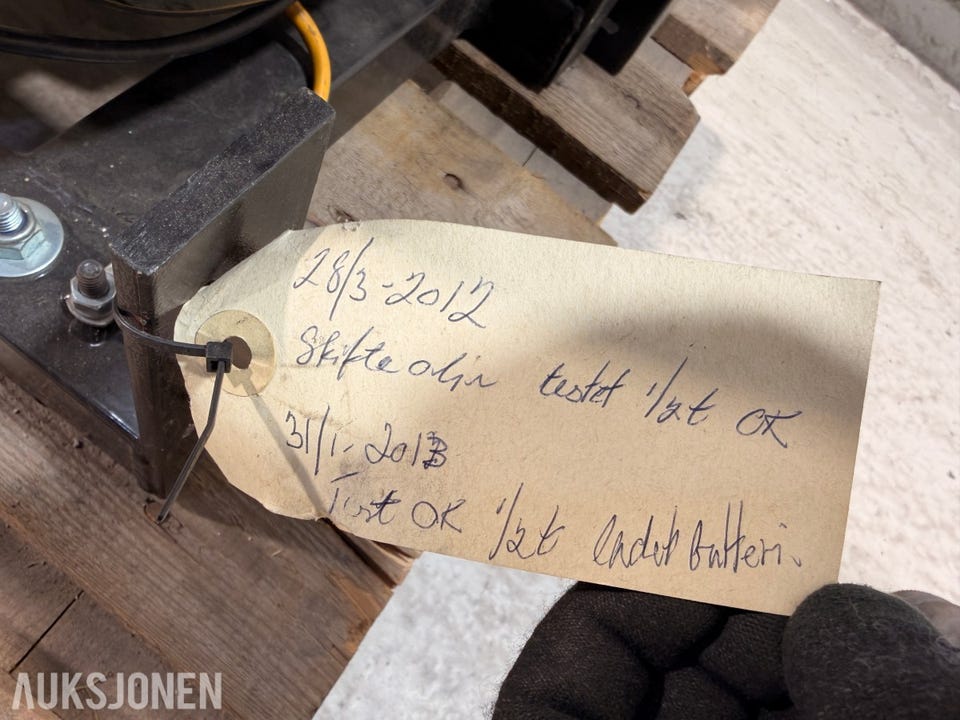 28/3-2012
Skifta oljn testet 1/2t OK
31/1-2013
Test OK 1/2t ladet batteri.
AUKSJONEN